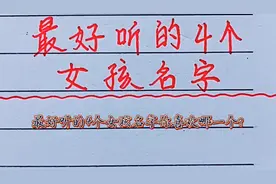 最好听的4个
女孩名字
最好听的4个女孩名字你喜欢哪一个?